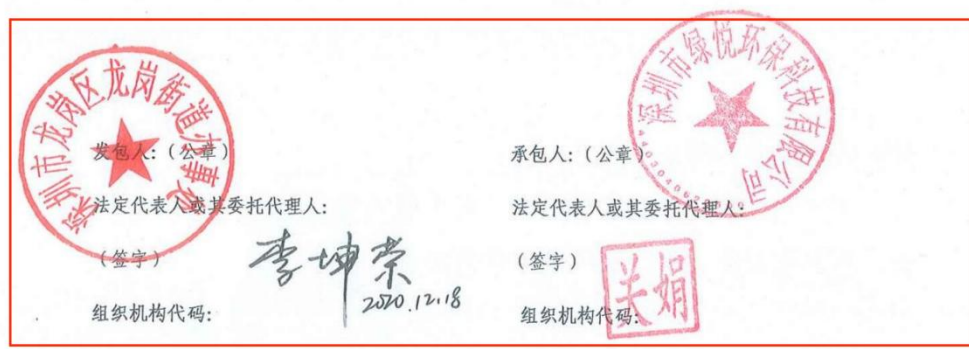 深圳市龙岗区龙岗街道办事处
发包人:(公章)
法定代表人或其委托代理人:
(签字)
李坤荣
2020.12.18
组织机构代码:
深圳市绿悦环保科技有限公司
承包人:(公章)
法定代表人或其委托代理人:
(签字)
关娟
组织机构代码: